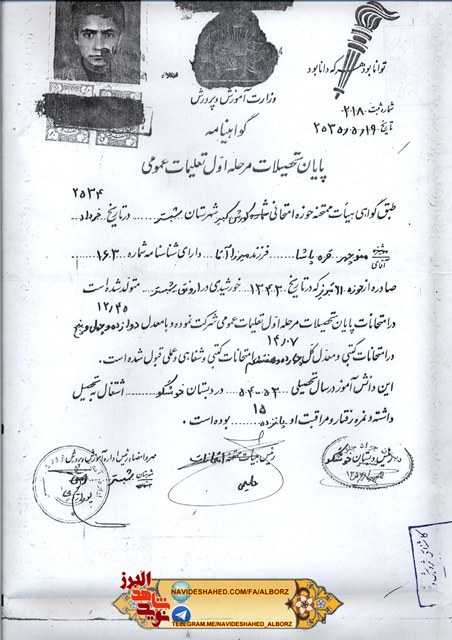 توانا بود هر که دانا بود
وزارت آموزش و پرورش
شماره ثبت ۲۱۸
گواهینامه
تاریخ ۲۵۳۵/۵/۱۹
پایان تحصیلات مرحله اول تعلیمات عمومی
۲۵۳۴
طبق گواهی هیأت ممتحنه حوزه امتحانی شهرستان شبستر در تاریخ خرداد
آقای منوچهر قره پاشا فرزند میرزا آقا دارای شناسنامه شماره ۱۶۳
صادره از حوزه ۱۱ تبریز که در تاریخ ۱۳۴۳ خورشیدی در شبستر متولد شده است
۱۲/۴۵
در امتحانات پایان تحصیلات مرحله اول تعلیمات عمومی شرکت نموده و با معدل دوازده و چهل و پنج
۱۴/۰۷
در امتحانات کتبی و معدل کل چهارده و هفت صدم امتحانات کتبی و شفاهی و عملی قبول شده است.
این دانش آموز در سال تحصیلی ۵۳-۵۴ در دبستان خوشگو اشتغال به تحصیل
۱۵
داشته و نمره رفتار و مراقبت او پانزده بوده است.
مهر و امضاء رئیس اداره آموزش و پرورش
شهرستان شبستر
رئیس هیأت ممتحنه امتحانات
رئیس دبستان خوشگو
البرز
نوید شاهد
NAVIDESHAHED.COM/FA/ALBORZ
TELEGRAM.ME/NAVIDESHAHED_ALBORZ